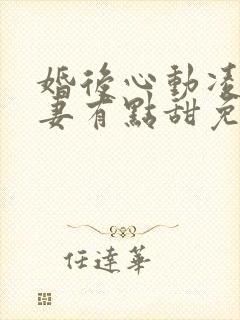 婚後心動凌
妻有點甜免
任達華